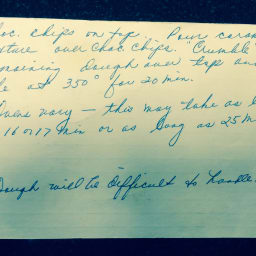 choc. chips on top. Pour caram
xture over choc chips. "Crumble"
maining dough over top and
ke at 350° for 20 min.
Ovens vary — this may take as l
16 or 17 min or as long as 25 M
Dough will be difficult to handle.